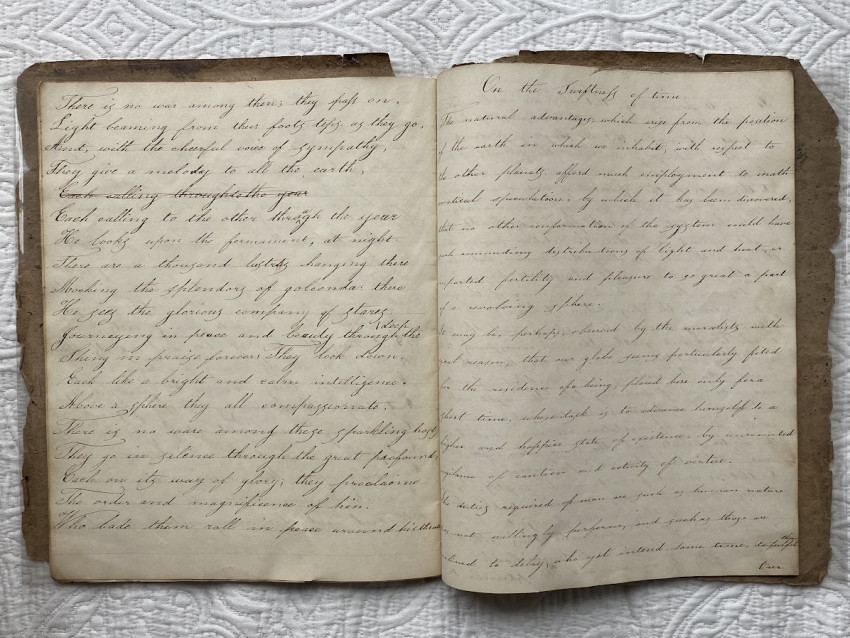 There is no war among them; they pass on.
Light beaming from their foots teps as they go.
And, with the cheerful voice of sympathy,
They give a melody to all the earth,
Each calling through to the year
Each calling to the other through the year
He looks upon the firmament, at night
There are a thousand lusters hanging there
Mocking the splendors of golconda: there
He sees the glorious company of stares
Journeying in peace and beauty through the deep
Shing in praize forever: They look down.
Each like a bright and calm intelligence.
Above a sphere they all compassionate.
There is no ware among these sparkling hosts
They go in silence through the great profound,
Each on its way of glory; they proclaime
The order and magnificence of him.
Who bade them roll in peace around his
On the Swiftness of time.
The natural advantages which rise from the position
of the earth in which we inhabit, with respect to
the other planets, afford much employment to math
ematical speculation, by which it has been discovered,
that no other conformation of the system could have
such commodious distributions of light and heat, or
imparted fertility and pleasure to so great a part
of a revolving sphere.
It may be, perhaps, observed by the moralist, with
equal reason, that our globe seems particularly fited
for the residence of a being, placed here only for a
short time, whose task is to advance himself to a
higher and happier state of existence by unremitted
vigilance of caution and activity of virtue.
The duties required of man are such as human nature
does not willingly perform, and such as those are
inclined to delay, who yet intend some time to fulfil
them